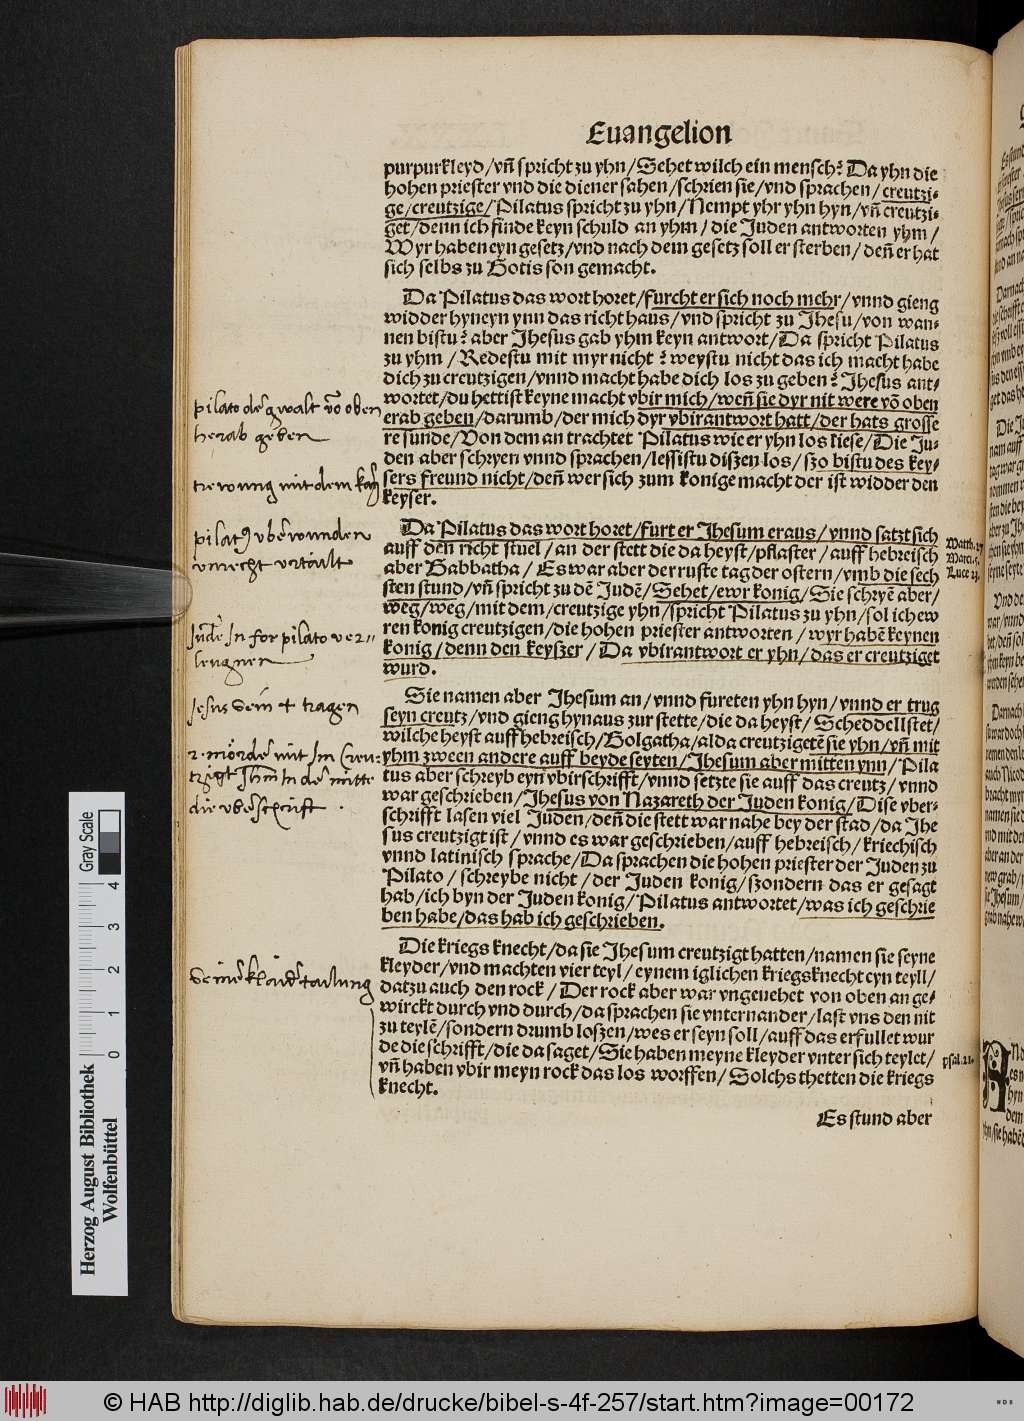 Euangelion
purpurkleyd/vñ spricht zu yhn/Sehet wilch ein mensch? Da yhn die
hohen priester vnd die diener sahen/schrien sie/vnd sprachen/creutzi-
ge/creutzige/Pilatus spricht zu yhn/Nempt yhr yhn hyn/vñ creutzi-
get/denn ich finde keyn schuld an yhm/die Juden antworten yhm/
Wyr haben eyn gesetz/vnd nach dem gesetz soll er sterben/deñ er hat
sich selbs zu Gotis son gemacht.
Da Pilatus das wort horet/furcht er sich noch mehr/vnnd gieng
widder hyneyn ynn das richthaus/vnd spricht zu Jhesu/von wan-
nen bistu? aber Jhesus gab yhm keyn antwort/Da spricht Pilatus
zu yhm/Redestu mit myr nicht? weystu nicht das ich macht habe
dich zu creutzigen/vnnd macht habe dich los zu geben? Jhesus ant-
wortet/du hettist keyne macht vbir mich/weñ sie dyr nit were võ oben
erab geben/darumb/der mich dyr vbirantwort hatt/der hats grosse
re sunde/Von dem an trachtet Pilatus wie er yhn los liese/Die Ju-
den aber schryen vnnd sprachen/lessistu diszen los/szo bistu des key-
sers freund nicht/deñ wer sich zum konige macht der ist widder den
keyser.
Da Pilatus das wort horet/furt er Jhesum eraus/vnnd satzt sich
auff den richt stuel/an der stett die da heyst/pflaster/auff hebreisch
aber Gabbatha/Es war aber der ruste tag der ostern/vmb die sech
sten stund/vñ spricht zu dẽ Judẽ/Sehet/ewr konig/Sie schryẽ aber/
weg/weg/mit dem/creutzige yhn/spricht Pilatus zu yhn/sol ich ew
ren konig creutzigen/die hohen priester antworten/wyr habẽ keynen
konig/denn den keyszer/Da vbirantwort er yhn/das er creutziget
wurd.
Sie namen aber Jhesum an/vnnd fureten yhn hyn/vnnd er trug
seyn creutz/vnd gieng hynaus zur stette/die da heyst/Scheddellstet/
wilche heyst auff hebreisch/Golgatha/alda creutzigetẽ sie yhn/vñ mit
yhm zween andere auff beyde seyten/Jhesum aber mitten ynn/Pila
tus aber schreyb eyn vbirschrifft/vnnd setzte sie auff das creutz/vnnd
war geschrieben/Jhesus von Nazareth der Juden konig/Dise vber-
schrifft lasen viel Juden/deñ die stett war nahe bey der stad/da Jhe
sus creutzigt ist/vnnd es war geschrieben/auff hebreisch/kriechisch
vnnd latinisch sprache/Da sprachen die hohen priester der Juden zu
Pilato/schreybe nicht/der Juden konig/szondern das er gesagt
hab/ich byn der Juden konig/Pilatus antwortet/was ich geschrie
ben habe/das hab ich geschrieben.
Die kriegs knecht/da sie Jhesum creutzigt hatten/namen sie seyne
kleyder/vnd machten vier teyl/eynem iglichen kriegsknecht eyn teyll/
datzu auch den rock/Der rock aber war vngenehet von oben an ge-
wirckt durch vnd durch/da sprachen sie vnternander/last vns den nit
zu teylẽ/sondern drumb loszen/wes er seyn soll/auff das erfullet wur
de die schrifft/die da saget/Sie haben meyne kleyder vnter sich teylet/
vñ haben vbir meyn rock das los worffen/Solchs thetten die kriegs
knecht.
Es stund aber
Matth. 27
Marci. 15.
Luce 23.
psal. 21.
pilato der gwalt võ oben
herab geben
pilatus vberwunden
vnrecht vrtailt
Juden In for pilato ver-
leugnen
Jesus sein + tragen
2. mörder mit Im Creu-
tzigt Ihm In der mitte
die vberschrift.
Seiner klaider tailung
Herzog August Bibliothek
Wolfenbüttel
0 1 2 3 4
Gray Scale
© HAB http://diglib.hab.de/drucke/bibel-s-4f-257/start.htm?image=00172